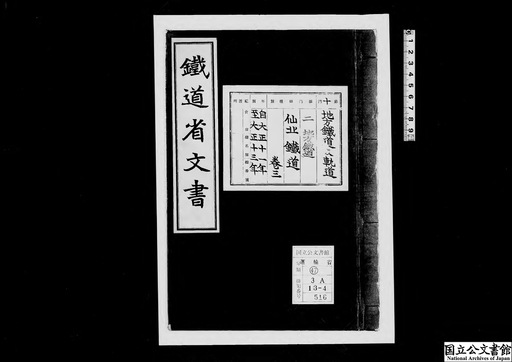 鐵道省文書
十、地方鐵道及軌道
二、地方鐵道
仙北鐵道
巻三
自大正十一年
至大正十三年
国立公文書館
運輸省
3 A
13-4
516
1 2 3 4 5 6 7 8 9
国立公文書館
National Archives of Japan